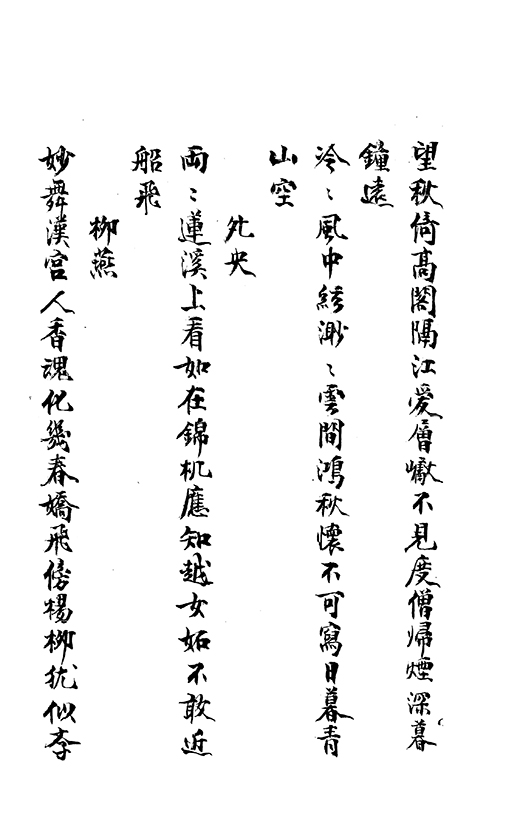 望秋倚高閣隔江愛層巘不見度僧帰煙深暮
鐘遠
泠〻風中絃渺〻雲間鴻秋懷不可寫日暮青
山空
夗央
両〻蓮溪上看如在錦机應知越女妬不敢近
船飛
柳燕
妙舞漢宮人香魂化幾春嬌飛傍楊柳犹似李